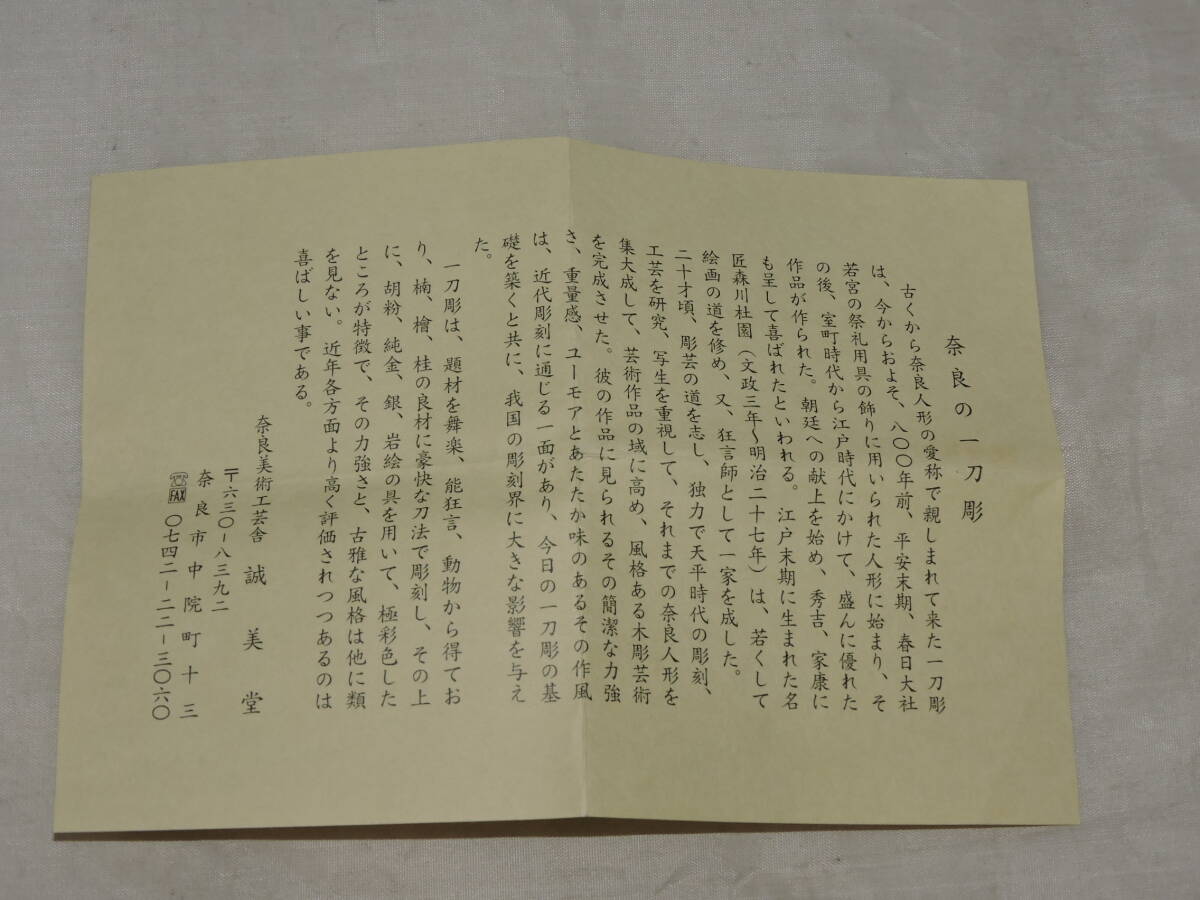 奈良の一刀彫
古くから奈良人形の愛称で親しまれて来た一刀彫
は、今からおよそ、八〇〇年前、平安末期、春日大社
若宮の祭礼用具の飾りに用いられた人形に始まり、そ
の後、室町時代から江戸時代にかけて、盛んに優れた
作品が作られた。朝廷への献上を始め、秀吉、家康に
も呈して喜ばれたといわれる。江戸末期に生まれた名
匠森川杜園（文政三年〜明治二十七年）は、若くして
絵画の道を修め、又、狂言師として一家を成した。
二十才頃、彫芸の道を志し、独力で天平時代の彫刻、
工芸を研究、写生を重視して、それまでの奈良人形を
集大成して、芸術作品の域に高め、風格ある木彫芸術
を完成させた。彼の作品に見られるその簡潔な力強
さ、重量感、ユーモアとあたたか味のあるその作風
は、近代彫刻に通じる一面があり、今日の一刀彫の基
礎を築くと共に、我国の彫刻界に大きな影響を与え
た。
一刀彫は、題材を舞楽、能狂言、動物から得てお
り、楠、檜、桂の良材に豪快な刀法で彫刻し、その上
に、胡粉、純金、銀、岩絵の具を用いて、極彩色した
ところが特徴で、その力強さと、古雅な風格は他に類
を見ない。近年各方面より高く評価されつつあるのは
喜ばしい事である。
奈良美術工芸舎 誠美堂
〒六三〇－八三九二
奈良市中院町十三
☎FAX 〇七四二－二二－三〇六〇